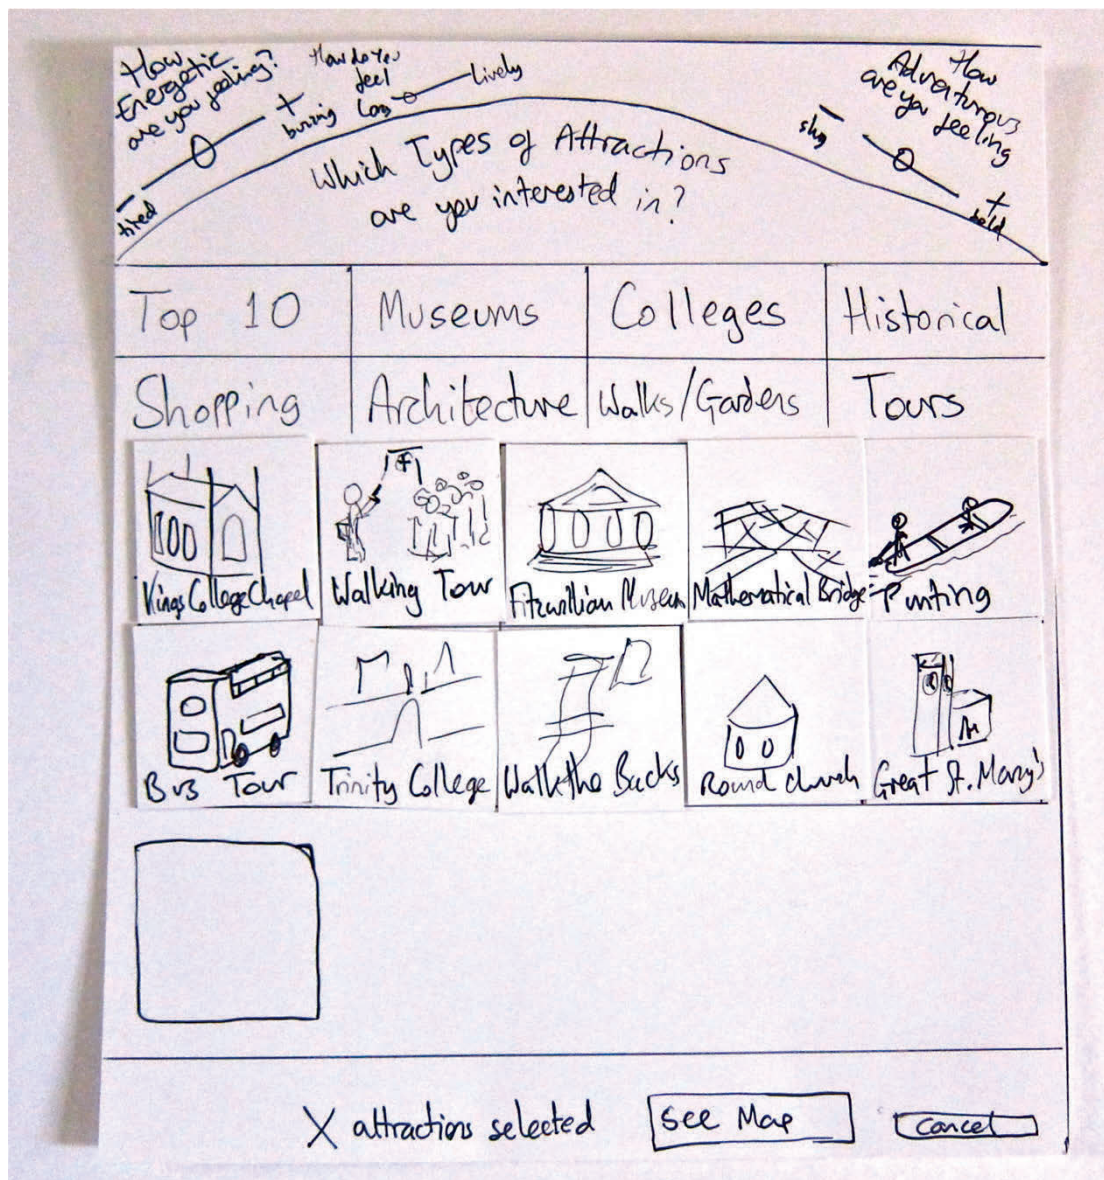 How
Energetic
are you feeling?
+
buzzing
-
tired
How do you
feel
Lively
How
Adventurous
are you feeling
-
shy
+
bold
Which Types of Attractions
are you interested in?
Top 10
Museums
Colleges
Historical
Shopping
Architecture
Walks/Gardens
Tours
Kings College Chapel
Walking Tour
Fitzwillian Museum
Mathematical Bridge
Punting
Bus Tour
Trinity College
Walk the Backs
Round church
Great St. Mary's
X attractions selected
See Map
Cancel